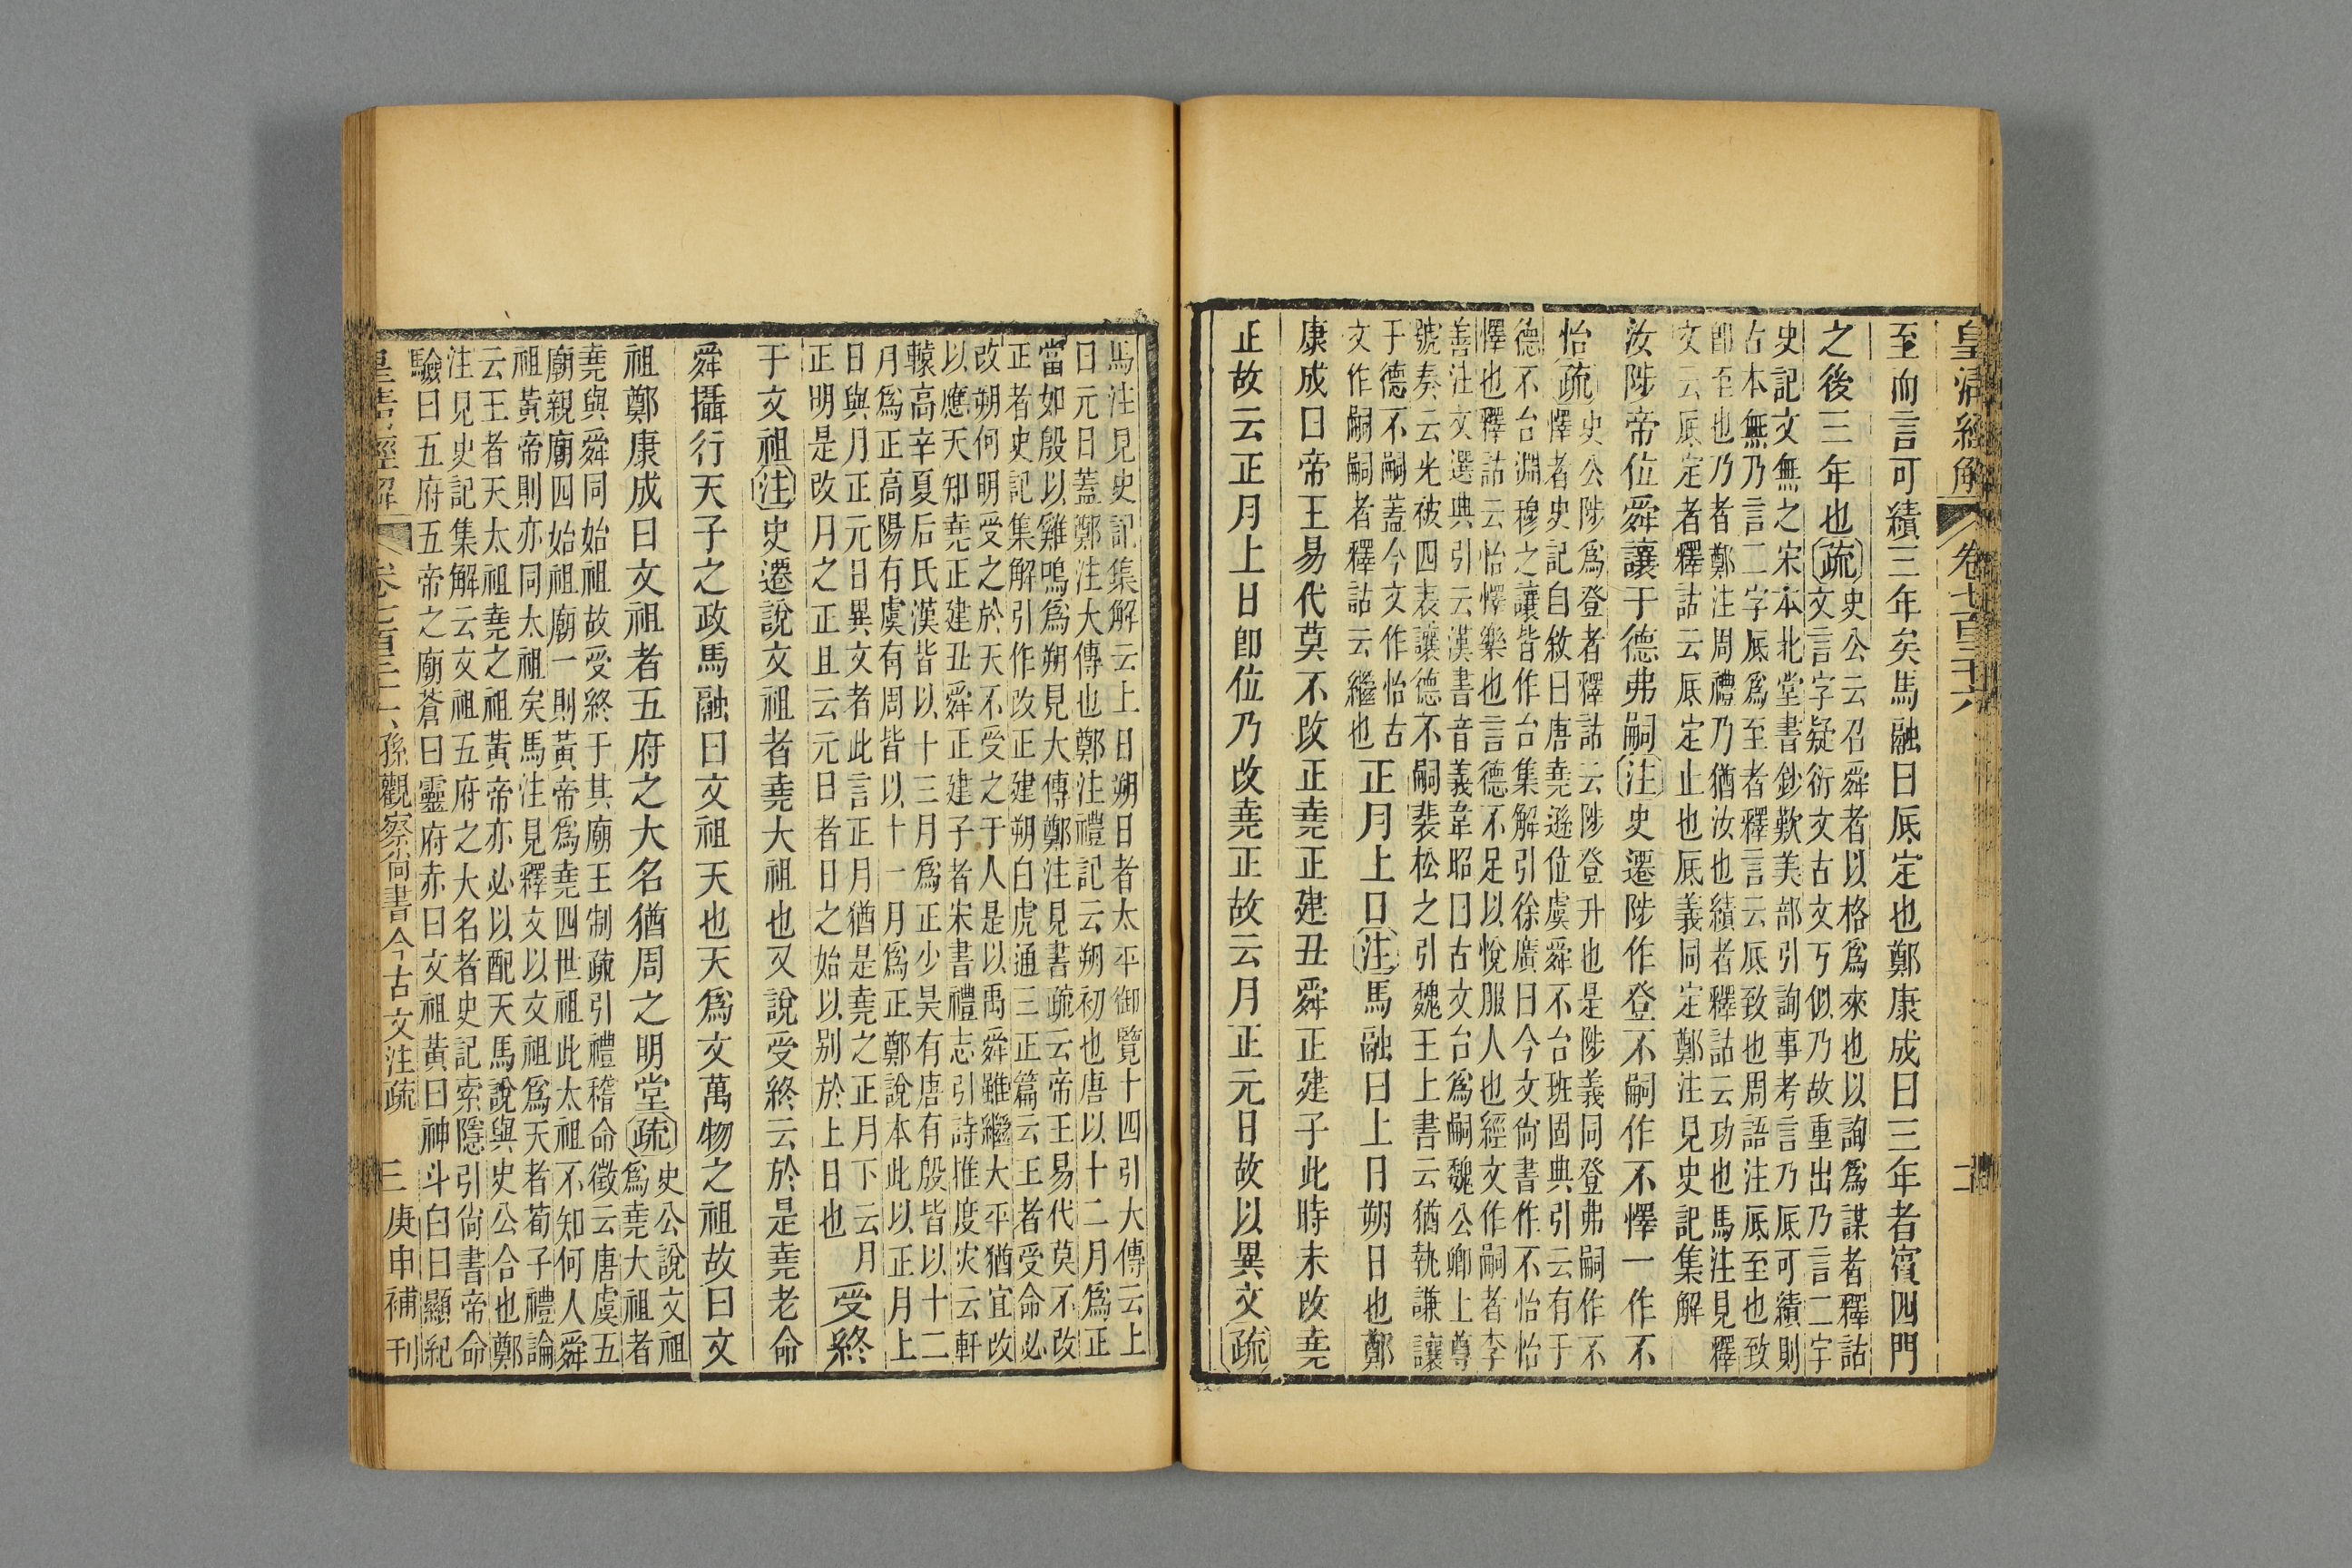 皇清經解 卷七百三十六 二
至而言可績三年矣馬融曰厎定也鄭康成曰三年者賓四門
之後三年也疏史公云召舜者以格爲來也以詢爲謀者釋詁
文言字疑衍文古文丂似乃故重出乃言二字
史記文無之宋本北堂書鈔歎美部引詢事考言乃厎可績則
古本無乃言二字厎爲至者釋言云厎致也周語注厎至也致
卽至也乃者鄭注周禮乃猶汝也績者釋詁云功也馬注見釋
文云厎定者釋詁云厎定止也厎義同定鄭注見史記集解
汝陟帝位舜讓于德弗嗣注史遷陟作登不嗣作不懌一作不
怡疏史公陟爲登者釋詁云陟登升也是陟義同登弗嗣作不
懌者史記自敘曰唐堯遜位虞舜不台班固典引云有于
德不台淵穆之讓皆作台集解引徐廣曰今文尙書作不怡怡
懌也釋詁云怡懌樂也言德不足以悅服人也經文作嗣者李
善注文選典引云漢書音義韋昭曰古文台爲嗣魏公卿上尊
號奏云光被四表讓德不嗣裴松之引魏王上書云猶執謙讓
于德不嗣蓋今文作怡古
文作嗣嗣者釋詁云繼也
正月上日注馬融曰上日朔日也鄭
康成曰帝王易代莫不改正堯正建丑舜正建子此時未改堯
正故云正月上日卽位乃改堯正故云月正元日故以異文疏
馬注見史記集解云上日朔日者太平御覽十四引大傳云上
日元日蓋鄭注大傳也鄭注禮記云朔初也唐以十二月爲正
當如殷以雞鳴爲朔見大傳鄭注見書疏云帝王易代莫不改
正者史記集解引作改正建朔白虎通三正篇云王者受命必
改朔何明受之於天不受之于人是以禹舜雖繼大平猶宜改
以應天知堯正建丑舜正建子者宋書禮志引詩推度災云軒
轅高辛夏后氏漢皆以十三月爲正少昊有唐有殷皆以十二
月爲正高陽有虞有周皆以十一月爲正鄭說本此以正月上
日與月正元日異文者此言正月猶是堯之正月下云月
正明是改月之正且云元日者日之始以別於上日也
受終
于文祖注史遷說文祖者堯大祖也又說受終云於是堯老命
舜攝行天子之政馬融曰文祖天也天爲文萬物之祖故曰文
祖鄭康成曰文祖者五府之大名猶周之明堂疏史公說文祖
爲堯大祖者
堯與舜同始祖故受終于其廟王制疏引禮稽命徵云唐虞五
廟親廟四始祖廟一則黃帝爲堯四世祖此太祖不知何人舜
祖黃帝則亦同太祖矣馬注見釋文以文祖爲天者荀子禮論
云王者天太祖堯之祖黃帝亦必以配天馬說與史公合也鄭
注見史記集解云文祖五府之大名者史記索隱引尙書帝命
驗曰五府五帝之廟蒼曰靈府赤曰文祖黃曰神斗白曰顯紀
皇清經解 卷七百三十六 孫觀察尙書今古文注疏 三 庚申補刊